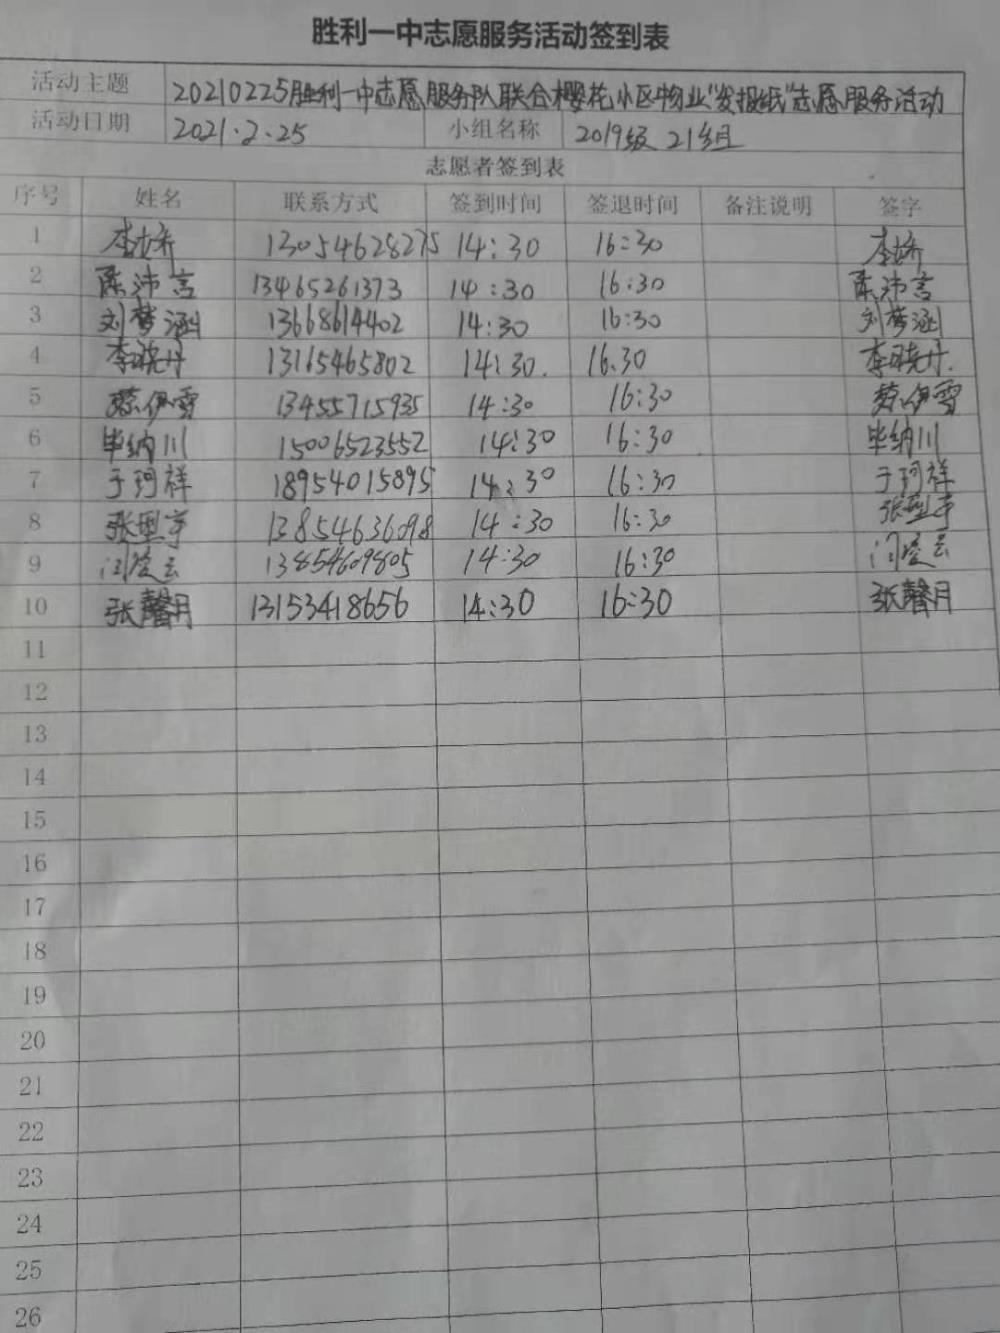 胜利一中志愿服务活动签到表
活动主题 20210225胜利一中志愿服务队联合樱花小区物业"发报纸"志愿服务活动
活动日期 2021.2.25 小组名称 2019级 21组
志愿者签到表
序号 姓名 联系方式 签到时间 签退时间 备注说明 签字
1 李娇 13054628275 14:30 16:30 李娇
2 陈沛言 13465261373 14:30 16:30 陈沛言
3 刘梦涵 13668614402 14:30 16:30 刘梦涵
4 李晓丹 13165465802 14:30. 16.30 李晓丹.
5 蔡伊雪 13455715935 14:30 16:30 蔡伊雪
6 毕纳川 15006523552 14:30 16:30 毕纳川
7 于珂祥 18954015895 14:30 16:30 于珂祥
8 张 13854636098 14:30 16:30 张
9 13854609805 14:30 16:30
10 张馨月 13153418656 14:30 16:30 张馨月
11
12
13
14
15
16
17
18
19
20
21
22
23
24
25
26